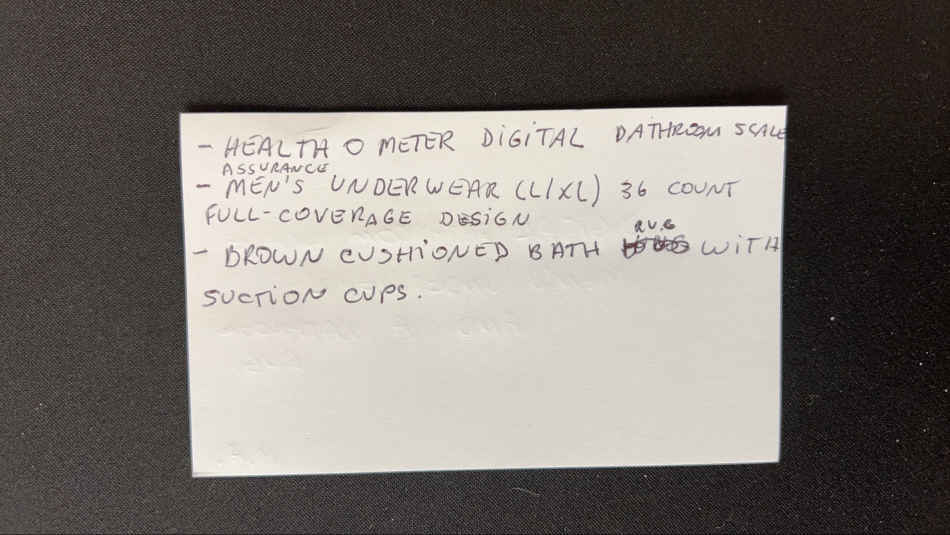 - HEALTH O METER DIGITAL BATHROOM SCALE
ASSURANCE
- MEN'S UNDERWEAR (L/XL) 36 COUNT
FULL-COVERAGE DESIGN
RUG
- BROWN CUSHIONED BATH WITH
SUCTION CUPS.